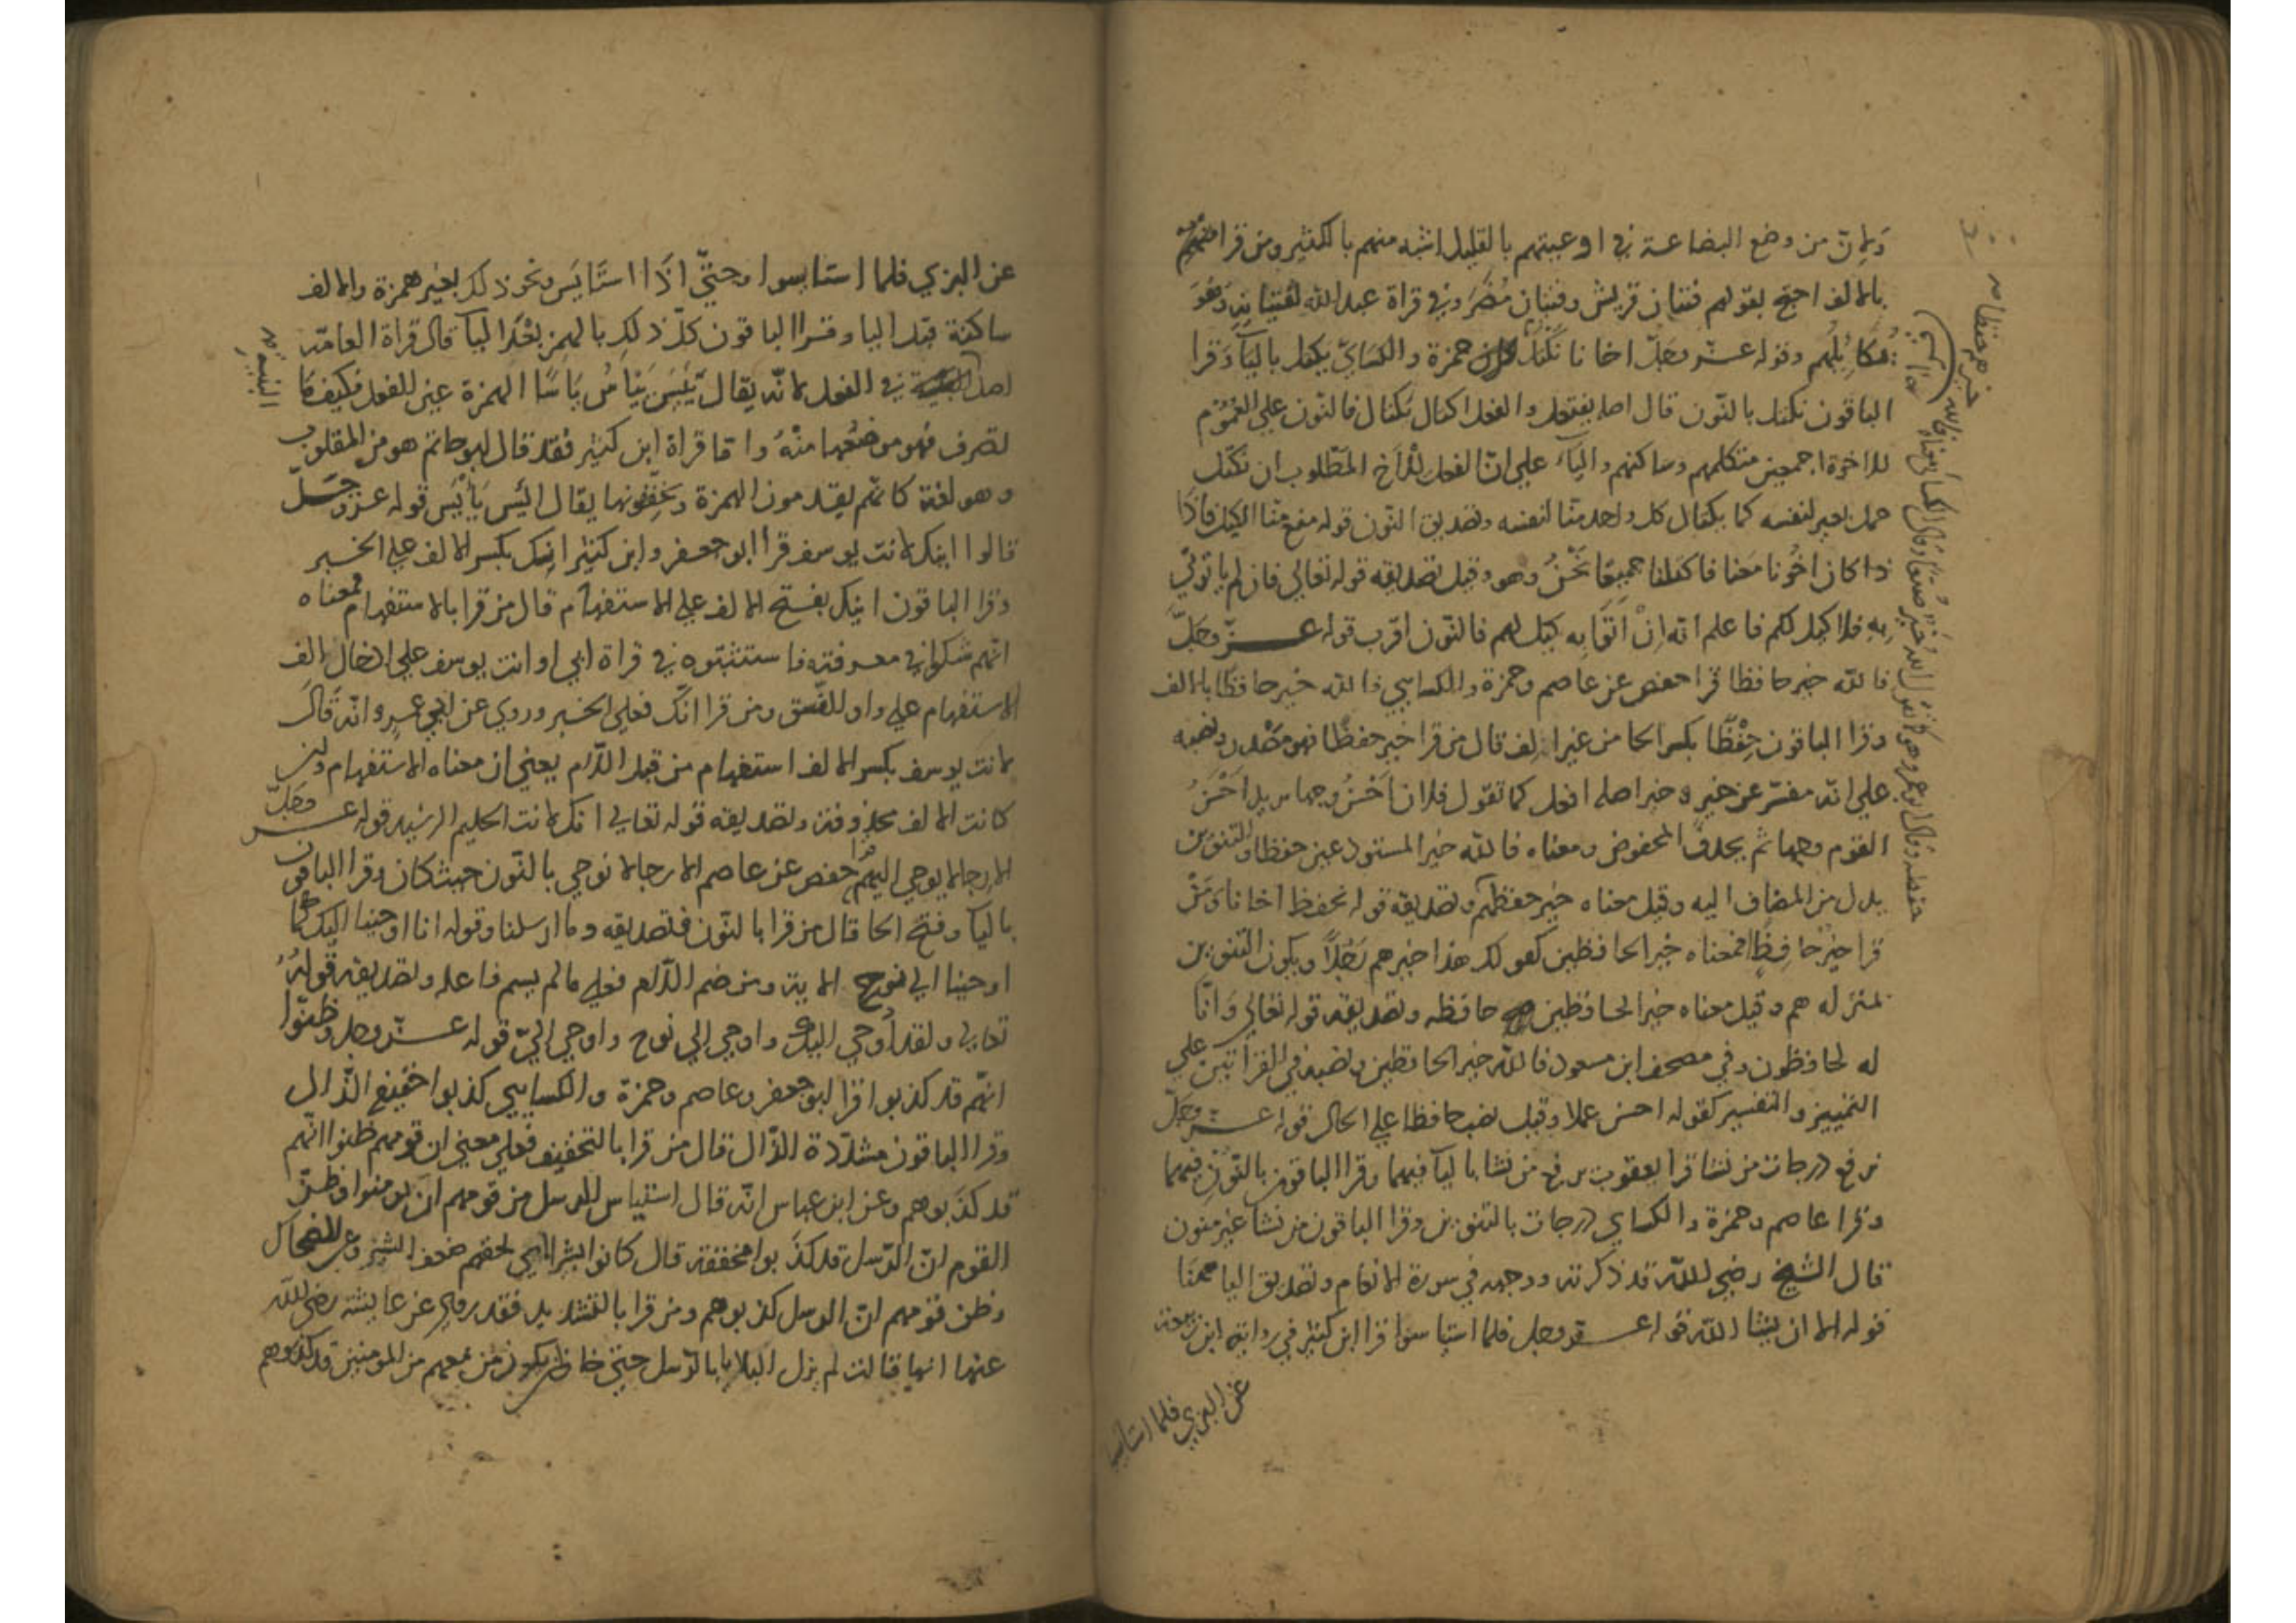 ولان من وضع البضاعة في اوعيتهم بالقليل اشبه منهم بالكثير ومن قرا
بالالف احتج بقولهم فتيان قريش وفتيان مُضَر وفي قراة عبد الله لفتيانه وهو
يُكايلُهم وقوله عز وجلّ اخانا نكتل حمزة والكسايّ يكتل باليآ وقرا
الباقون نكتل بالنّون قال اصله يفتعل والفعل اكتال يكتال فالنّون علي العُمُوم
للاخوة اجمعين متكلمهم وساكتهم واليآء علي انّ الفعل للأخ المَطلوب ان نكتل
حمل بعير لنفسه كما يكتال كل واحد منّا لنفسه وتصديق النّون قوله منع منّا الكيل فاذا
ذا كان اخُونا مَعَنا فاكتلنا جميعًا نَحْنُ وهو وقيل تصديقه قوله تعالي فان لم ياتوني
بِهِ فلا كيل لكم فاعلم انه اِنْ اَتَوا به كيل لهم فالنّون اقرب قوله عزّ وجَلّ
فالله خير حافظا قرا حفص عن عاصم وحمزة والكسايي فالله خير حافظًا بالالف
وقرا الباقون حِفْظًا بكسر الحا من غير الِف قال من قرا خير حفظًا فهو مصْدر ونصبه
علي انّه مفسّر عن خير وخير اصله افعل كما تقول فلان اَحْسَنُ وجها يريد اَحْسَنُ
القوم وجها ثم يحذف المخفوض ومعناه فالله خير المستودعين حفظا والتنوين
بدل من المضاف اليه وقيل معناه خير حفظهم وتصديقه قوله نحفظ اخانا وَمَنْ
قرا خير حافِظًا فمعناه خير الحافظين كقولك هذا خيرهم رَجُلاً ويكون التنوين
بمنزله هم وقيل معناه خير الحافظين حافظه وتصديقه قوله تعالي وَانّا
له لحافظون وفي مصحف ابن مسعود فالله خير الحافظين ونصبه في القراتين علي
التمييز والتفسير كقوله احسن عملا وقيل نصب حافظا علي الحال قوله عز وجلّ
نرفع درجات من نشا قرا يعقوب يرفع من يشا باليآ فيهما وقرا الباقون بالنّون فيهما
وقرا عاصم وحمزة والكسايي درجات بالتنوين وقرا الباقون من نشا غير منون
قال الشيخ رضي الله قد ذكرته ووجهه في سورة الانعام وتصديق اليا ههنا
قوله الا ان يشا الله قوله عز وجل فلما استياسوا قرا ابن كثير في رواية ابن
عن البزي فلما استايسوا
عن البزي فلما استايسوا وحتيّ اذَا استَايَس ونحو ذلك بغير همزة والالف
ساكنة قبل اليا وقرا الباقون كلّ ذلك بالهمز بعْد اليآ قال قراة العامّه
اصل في الفعل لانه يقال يَئِسَ يَيْاسُ يَاسًا الهمزة عين الفعل فكيف مَا
تصرف فهو موضعها منْهُ واما قراة ابن كثير فقد قال ابو حاتم هو من المقلوب
وهو لغة كانهم يقدمون الهمزة ويخففونها يقال ائيس يَأْيَس قوله عز وجَلّ
قالوا اينك لانت يوسف قرأ ابو جعفر وابن كثير انك بكسر الالف علي الخبر
وقرا الباقون اينك بفتح الالف علي الاستفهام قال من قرا بالاستفهام فمعناه
انهم شكوا في معرفته فاستثبتوه في قراة ابي او انت يوسف علي ادخال الف
الاستفهام علي واو النّسق ومن قرا انّك فعلي الخبر وروي عن ابي عمرو انّه قالَ
لانت يوسف بكسر الالف استفهام من قبل اللام يعني ان معناه الاستفهام وان
كانت الالف محذوفة وتصديقه قوله تعالي انك لانت الحليم الرشيد قوله عز وجَلّ
الا رجالا يوحي اليهم قرا حفص عن عاصم الا رجالا نوحي بالنّون حيث كان وقرا الباقون
باليآ وفتح الحا قال من قرا بالنّون فتصديقه وما ارسلنا وقوله انا اوحينا اليك كما
اوحينا الي نوح الاية ومن ضم اللام فعلي ما لم يسم فاعله وتصديقه قولهُ
تعالي ولقد اُوحي اليك واوحي إلي نوح واوحي اليّ قوله عز وجل وظنّوا
انّهم قد كذبوا قرا ابو جعفر وعاصم وحمزة والكسايي كذبوا خفيف الذّال
وقرا الباقون مشدّدة الذّال قال من قرا بالتخفيف فعلي معني ان قومهم ظنوا انّهم
قد كذَبوهم وعن ابن عباس انّه قال استياس الرسل من قومهم ان يومنوا وظنّ
القوم انّ الرّسل قد كذَبوا مخففة قال كانوا بشرا لحقهم ضعف البشر وعن الضحاك
وظن قومهم انّ الرسل كذبوهم ومن قرا بالتشديد فقد روي عن عايشة رضي الله
عنها انها قالت لم يزل البلايا بالرّسل حتي خافوا ان يكون من معهم من المومنين قد كذّبوهم